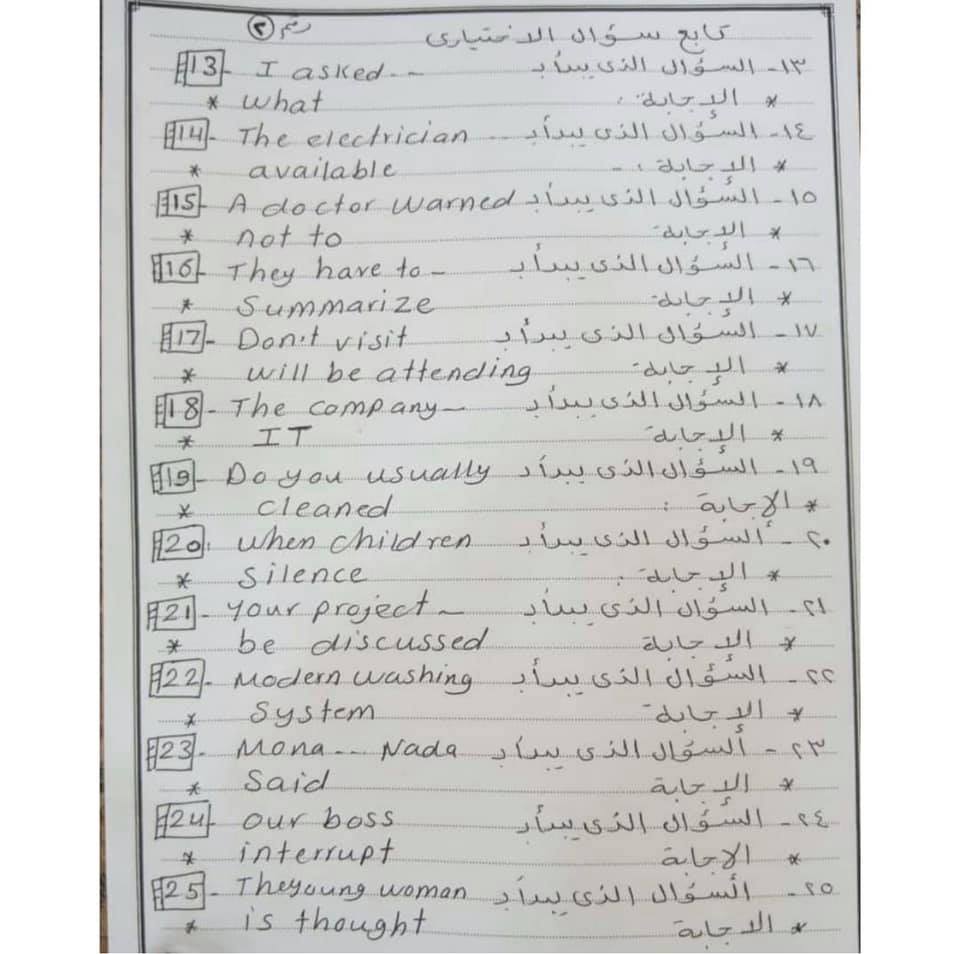 تابع سؤال الاختيارى رقم ٢
13- I asked -- ١٣- السؤال الذى يبدأ بـ
* what * الاجابة :
14- The electrician -- ١٤- السؤال الذى يبدأ بـ
* available * الاجابة :-
15- A doctor warned ١٥- السؤال الذى يبدأ بـ
* not to * الاجابة
16- They have to - ١٦- السؤال الذى يبدأ بـ
* Summarize * الاجابة
17- Don't visit ١٧- السؤال الذى يبدأ بـ
* will be attending * الاجابة
18- The company - ١٨- السؤال الذى يبدأ بـ
* IT * الاجابة
19- Do you usually ١٩- السؤال الذى يبدأ بـ
* cleaned * الاجابة :
20. when children ٢٠- السؤال الذى يبدأ بـ
* silence * الاجابة :
21- your project - ٢١- السؤال الذى يبدأ بـ
* be discussed * الاجابة
22- Modern washing ٢٢- السؤال الذى يبدأ بـ
* System * الاجابة
23- Mona -- Nada ٢٣- السؤال الذى يبدأ بـ
* Said * الاجابة
24- our boss ٢٤- السؤال الذى يبدأ بـ
* interrupt * الاجابة
25- The young woman ٢٥- السؤال الذى يبدأ بـ
* is thought * الاجابة